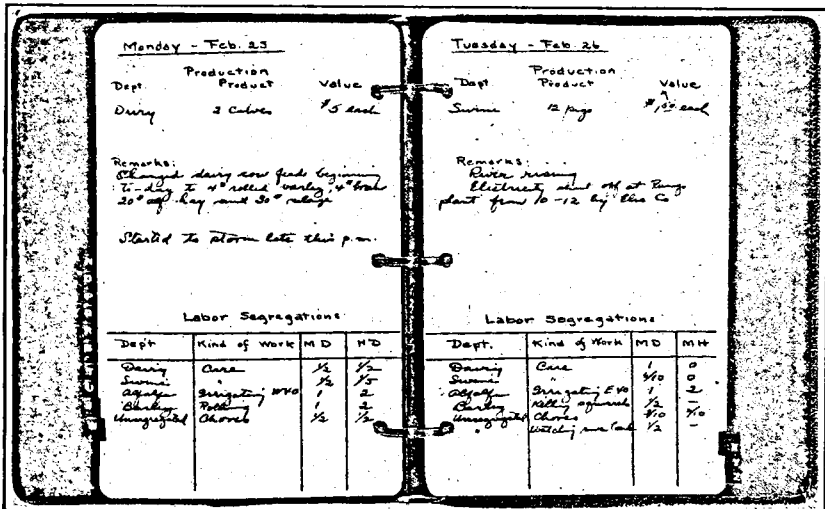 Monday - Feb. 25
Production
Dept. Product Value
Dairy 2 Calves $5 each
Remarks:
Changed dairy cow feeds beginning
To-day to 4# rolled barley, 4# bran
20# alf. hay and 30# silage
Started to storm late this p.m.
Labor Segregations
Dept Kind of Work MD HD
Dairy Care 1/2 1/2
Swine " 1/2 1/5
Alfalfa Irrigating W40 1 2
Barley Rolling 1 2
Unsegregated Chores 1/2 1/2
Tuesday - Feb. 26
Production
Dept Product Value
Swine 12 pigs $1.50 each
Remarks:
River rising
Electricity shut off at Pump
plant from 10-12 by Elec Co
Labor Segregations
Dept. Kind of Work MD MH
Dairy Care 1 0
Swine " 4/10 0
Alfalfa Irrigating E40 1 2
Barley Killing squirrels 1/2 -
Unsegregated Chores 4/10
" 1/2 -